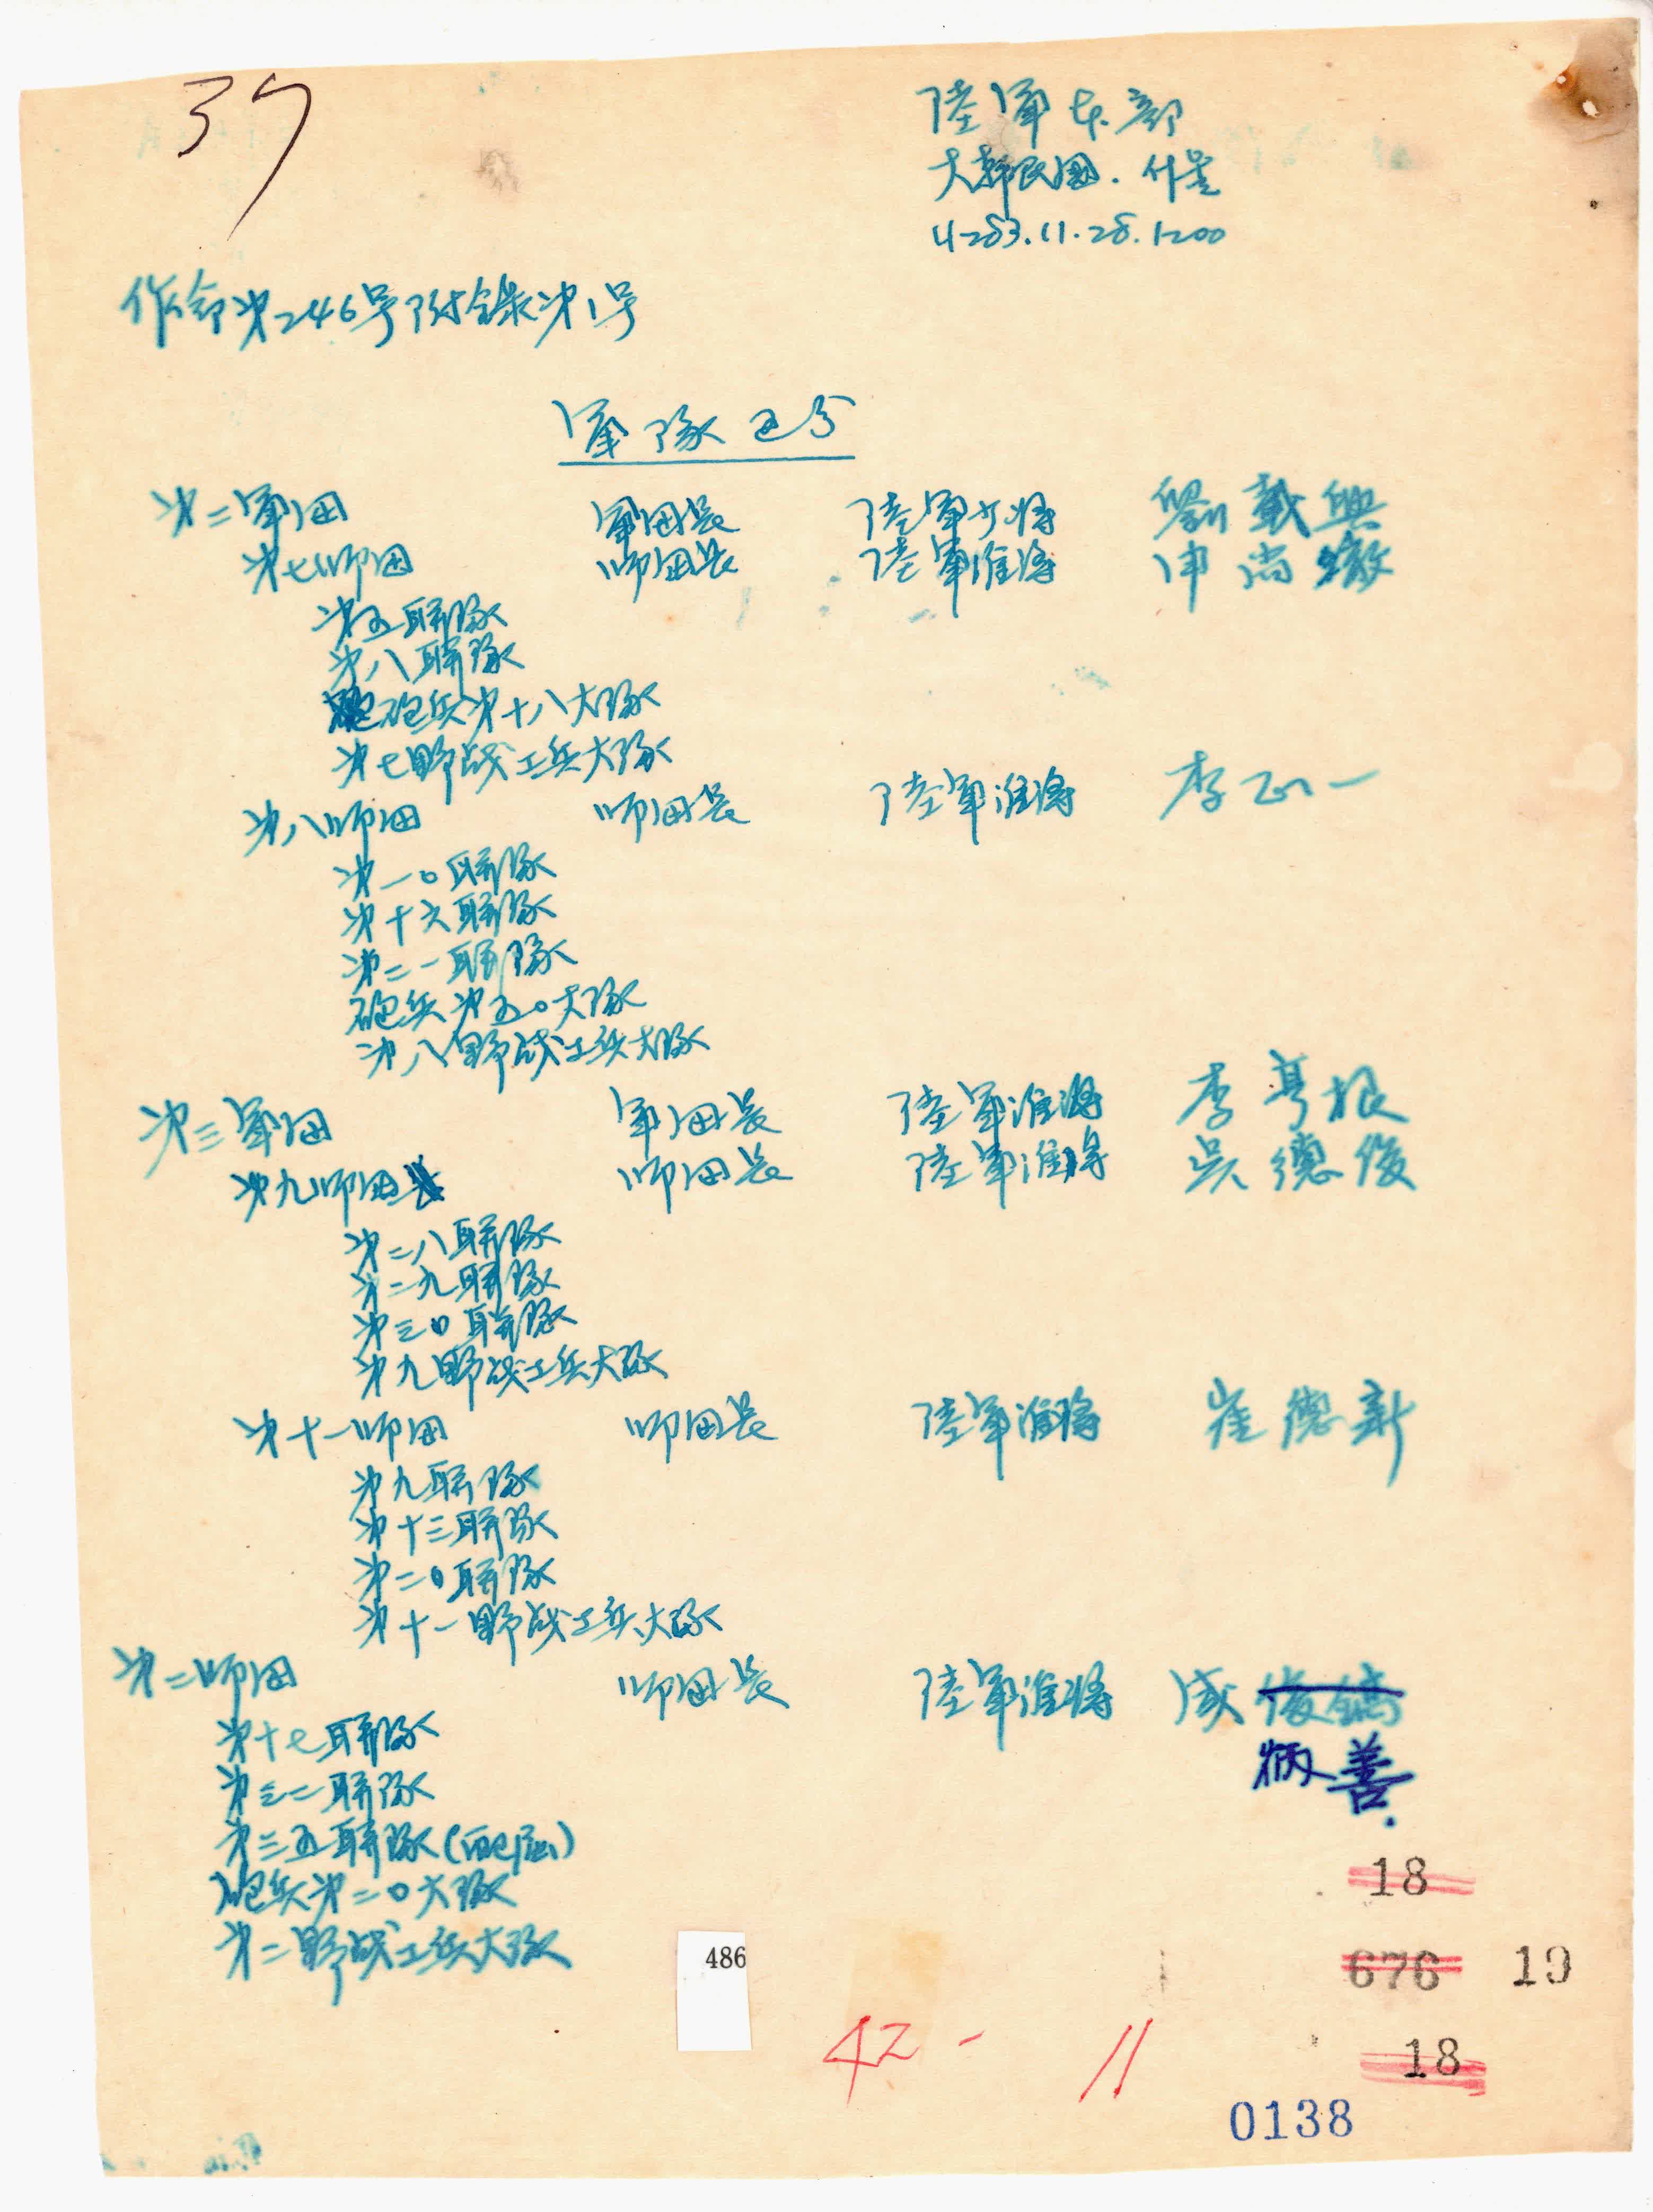 37
陸軍本部
大韓民國. 서울
4283.11.28.1200
作命第246号附錄第1号
軍隊区分
第二軍団 軍団長 陸軍少將 劉載興
第七師団 師団長 陸軍准將 申尚澈
第五联隊
第八联隊
砲兵第十八大隊
第七野战工兵大隊
第八師団 師団長 陸軍准將 李正一
第一〇联隊
第十六联隊
第二一联隊
砲兵第五〇大隊
第八野战工兵大隊
第三軍団 軍団長 陸軍准將 李亨根
第九師団 師団長 陸軍准將 吳德俊
第二八联隊
第二九联隊
第三〇联隊
第九野战工兵大隊
第十一師団 師団長 陸軍准將 崔德新
第九联隊
第十三联隊
第二〇联隊
第十一野战工兵大隊
第二師団 師団長 陸軍准將 咸俊鎬
炳善.
第十七联隊
第三二联隊
第三五联隊(配属)
砲兵第二〇大隊
第二野战工兵大隊
18
486
676 19
42 - 11
18
0138